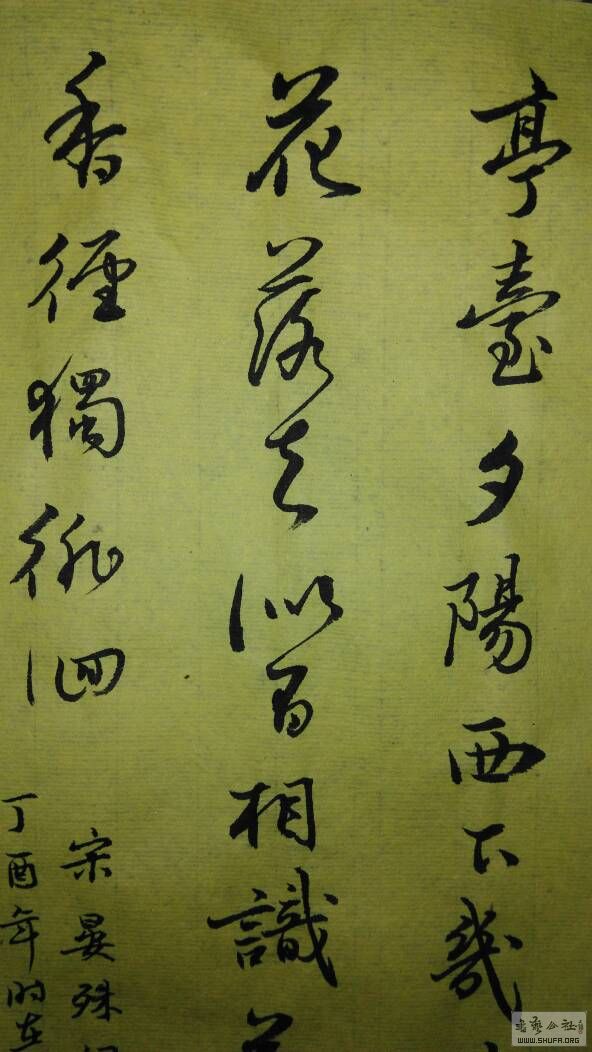 亭臺夕陽西下幾
花落去似曾相識
香徑獨徘徊
宋晏殊
丁酉年时在
书艺公社
WWW.SHUFA.ORG